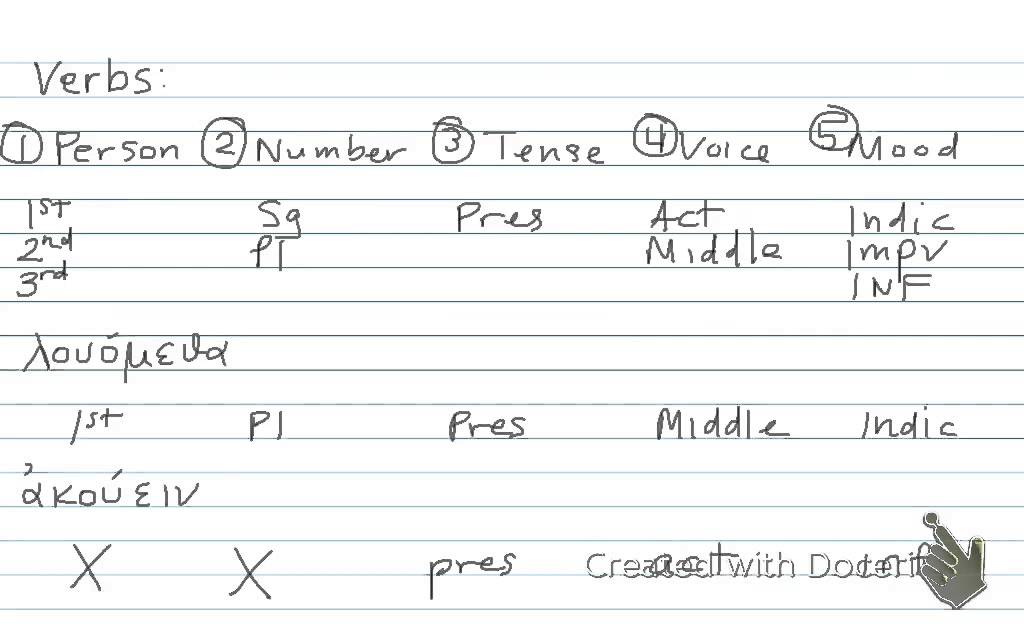 Verbs:
① Person ② Number ③ Tense ④ Voice ⑤ Mood
1st Sg Pres Act Indic
2nd Pl Middle Impv
3rd INF
λουόμεθα
1st Pl Pres Middle Indic
ἀκούειν
X X pres act inf
Created with Doceri